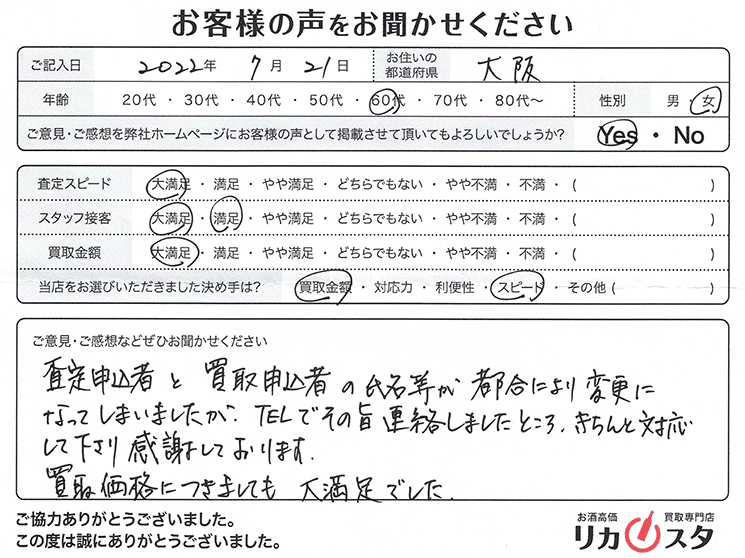 お客様の声をお聞かせください
ご記入日 2022年 7月 21日 お住いの都道府県 大阪
年齢 20代 ・ 30代 ・ 40代 ・ 50代 ・ 60代 ・ 70代 ・ 80代〜 性別 男 ・ 女
ご意見・ご感想を弊社ホームページにお客様の声として掲載させて頂いてもよろしいでしょうか? Yes ・ No
査定スピード 大満足 ・ 満足 ・ やや満足 ・ どちらでもない ・ やや不満 ・ 不満 ・ ( )
スタッフ接客 大満足 ・ 満足 ・ やや満足 ・ どちらでもない ・ やや不満 ・ 不満 ・ ( )
買取金額 大満足 ・ 満足 ・ やや満足 ・ どちらでもない ・ やや不満 ・ 不満 ・ ( )
当店をお選びいただきました決め手は? 買取金額 ・ 対応力 ・ 利便性 ・ スピード ・ その他 ( )
ご意見・ご感想などぜひお聞かせください
査定申込者と買取申込者の氏名等が都合により変更に
なってしまいましたが、TELでその旨連絡しましたところ、きちんと対応
して下さり感謝しております。
買取価格につきましても大満足でした。
ご協力ありがとうございました。
この度は誠にありがとうございました。
お酒高価 買取専門店
リカスタ